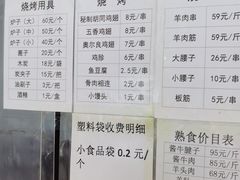 烧烤用具
炉子（大） 60元/个
炉子（中） 50元/个
炉子（小） 40元/个
蓖子 20元/个
木炭 18元/袋
炭夹子 15元/个
油刷子 2元/个
酒精 1元/盒
烧 烤
秘制同鸡翅 8元/串
五香鸡翅 8元/串
奥尔良鸡翅 8元/串
鸡胗 6元/串
鱼豆腐 2.5元/串
骨肉相连 2元/个
小馒头 1元/个
羊肉串 59元/斤
羊肉筋 59元/斤
大腰子 10元/个
小腰子
板筋 5元/串
塑料袋收费明细
小食品袋 0.2 元/
个
熟食价目表
酱牛腱子 95元/斤
酱牛肉 85元/斤
羊头肉 68元/斤